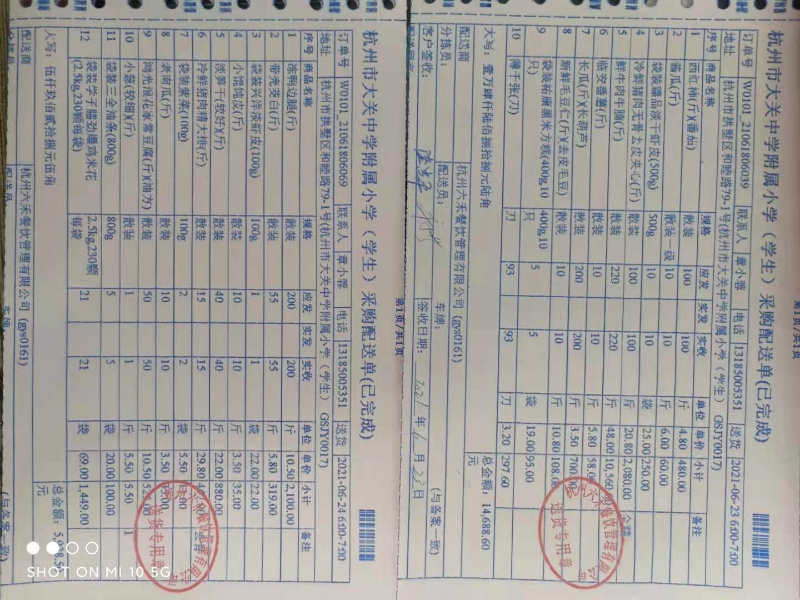 杭州市大关中学附属小学(学生)采购配送单(已完成)
订单号 W0101_21061806039 联系人 章小蓉 电话 13185005351 送货 2021-06-23 6:00-7:00
地址 杭州市拱墅区和睦路79-1号(杭州市大关中学附属小学(学生) GSJY0017)
序号 商品名称 规格 应发 实发 实收 单位 单价 小计 备注
1 西红柿(斤)(番茄) 散装 100 100 斤 4.80 480.00
2 黄瓜(斤) 散装一级 10 10 斤 6.00 60.00
3 袋装臻品淡干虾皮(500g) 500g 10 10 袋 25.00 250.00
4 冷鲜猪肉无骨去皮夹心(斤) 散装 100 100 斤 20.80 2,080.00
5 鲜牛肉牛腩(斤) 散装 220 220 斤 48.00 10,560
6 临安番薯(斤) 散装 10 10 斤 5.80 58.0
7 长瓜(斤)(长葫芦) 散装 200 200 斤 3.50 700
8 新鲜毛豆仁(斤)(去皮毛豆) 散装 10 10 斤 10.80 108.0
9 袋装祐康黑米方糕(400g,10只) 400g,10只 5 5 袋 19.00 95.00
10 薄千张(刀) 刀 93 93 刀 3.20 297.60
大写:壹万肆仟陆佰捌拾捌元陆角 总金额:14,688.60元
配送商 杭州六禾餐饮管理有限公司 (gys0161) (与备案一致)
分拣员: 配送员: 车牌:
客户签收: 签收日期: 2021年6月23日
送货专用章
第1页/共1页
杭州市大关中学附属小学(学生)采购配送单(已完成)
订单号 W0101_21061806069 联系人 章小蓉 电话 13185005351 送货 2021-06-24 6:00-7:00
地址 杭州市拱墅区和睦路79-1号(杭州市大关中学附属小学(学生) GSJY0017)
序号 商品名称 规格 应发 实发 实收 单位 单价 小计 备注
1 冻鸭边腿(斤) 散装 200 200 斤 10.50 2,100.00
2 带壳茭白(斤) 散装 55 55 斤 5.80 319.00
3 袋装兴洋淡虾皮(100g) 100g 1 1 袋 22.00 22.00
4 小馄饨皮(斤) 散装 10 10 斤 3.50 35.00
5 淡笋干(较好)(斤) 散装 40 40 斤 22.00 880.00
6 冷鲜猪肉精大排(斤) 散装 15 15 斤 29.80
7 袋装紫菜(100g) 100g 2 2 袋 5.50
8 老南瓜(斤) 散装 10 10 斤 3.50
9 鸿光浪花家常豆腐(斤)(油方) 散装 50 50 斤 10.50
10 小葱(较细)(斤) 散装 1 1 斤 5.50 5.50
11 袋装三全油条(800g) 800g 5 5 袋 20.00 100.00
12 袋装学子腩劲爆鸡米花(2.5kg230颗每袋) 2.5kg230颗每袋 21 21 袋 69.00 1,449.00
写:伍仟玖佰贰拾捌元伍角 总金额:5,928.5元
配送商 杭州六禾餐饮管理有限公司 (gys0161) (与备案一致)
分拣员: 配送员: 车牌:
送货专用章
SHOT ON MI 10 5G